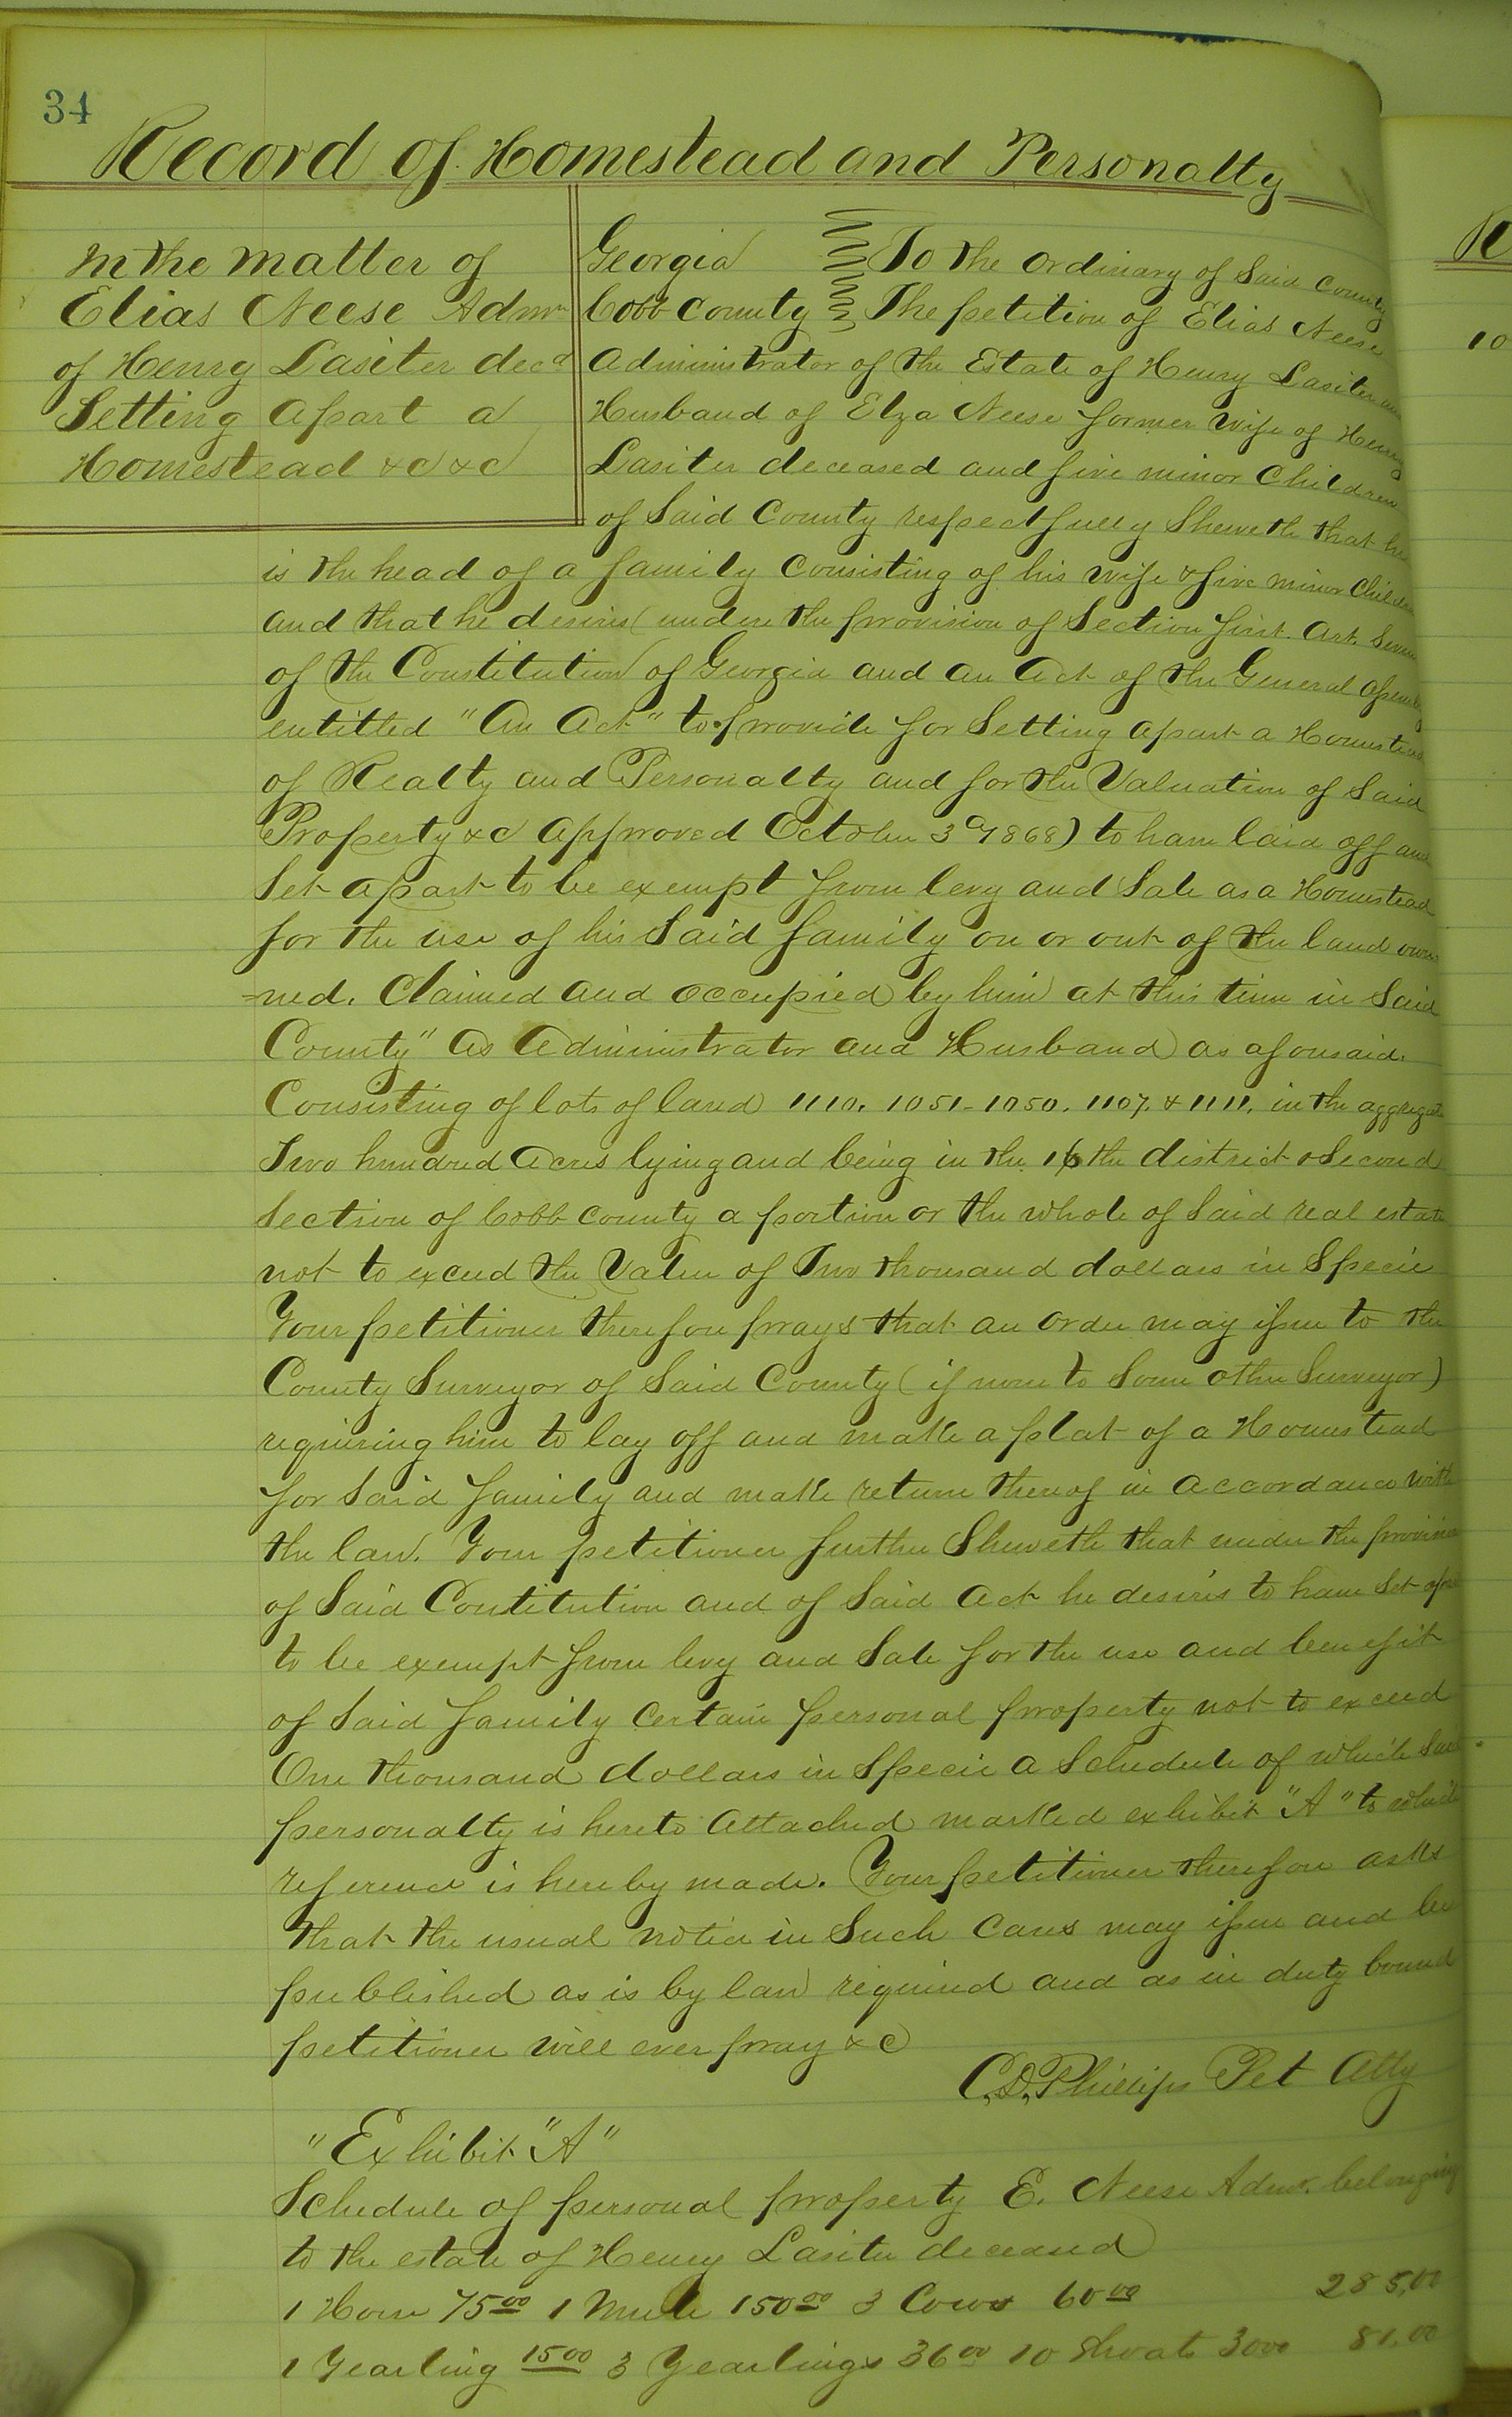 34
Record of Homestead and Personalty
In the matter of
Elias Neese Admr
of Henry Lasiter decd
Setting apart a
Homestead &c &c
Georgia To the Ordinary of Said County
Cobb County The petition of Elias Neese
Administrator of the Estate of Henry Lasiter and
Husband of Elza Neese former wife of Henry
Lasiter deceased and five minor Children
of Said County respectfully Sheweth that he
is the head of a family Consisting of his wife & five minor Children
and that he desires (under the provision of Section first. Art. Seven
of the Constitution of Georgia and an Act of the General Assembly
entitled "An Act" to provide for Setting apart a Homestead
of Realty and Personalty and for the Valuation of Said
Property &c Approved October 3d 1868) to have laid off and
Set apart to be exempt from levy and Sale as a Homestead
for the use of his Said family on or out of the land ow
=ned. Claimed and occupied by him at this time in Said
County" As Administrator and Husband as aforesaid.
Consisting of lots of land 1110. 1051- 1050. 1107. & 1111. in the aggregate
Two hundred Acres lying and being in the 16th district & Second
Section of Cobb County a portion or the whole of Said real estate
not to exceed the Value of Two thousand dollars in Specie
Your petitioner therefore prays that an order may issue to the
County Surveyor of Said County (if none to Some other Surveyor)
requiring him to lay off and make a plat of a Homestead
for Said family and make return thereof in accordance with
the law. Your petitioner further Sheweth that under the provision
of Said Constitution and of Said Act he desires to have Set apart
to be exempt from levy and Sale for the use and benefit
of Said family Certain personal property not to exceed
One thousand dollars in Specie a Schedule of which Said
personalty is hereto attached marked exhibit "A" to which
reference is hereby made. Your petitioner therefore asks
that the usual notice in Such Cases may issue and be
published as is by law required and as in duty bound
petitioner will ever pray &c
C.D. Phillips Pet Atty
"Exhibit "A"
Schedule of personal property E. Neese Admr. belonging
to the estate of Henry Lasiter deceased
1 Horse 75 00 1 Mule 150 00 3 Cows 60 00 285.00
1 Yearling 15 00 3 Yearlings 36 00 10 Shoats 30 00 81.00